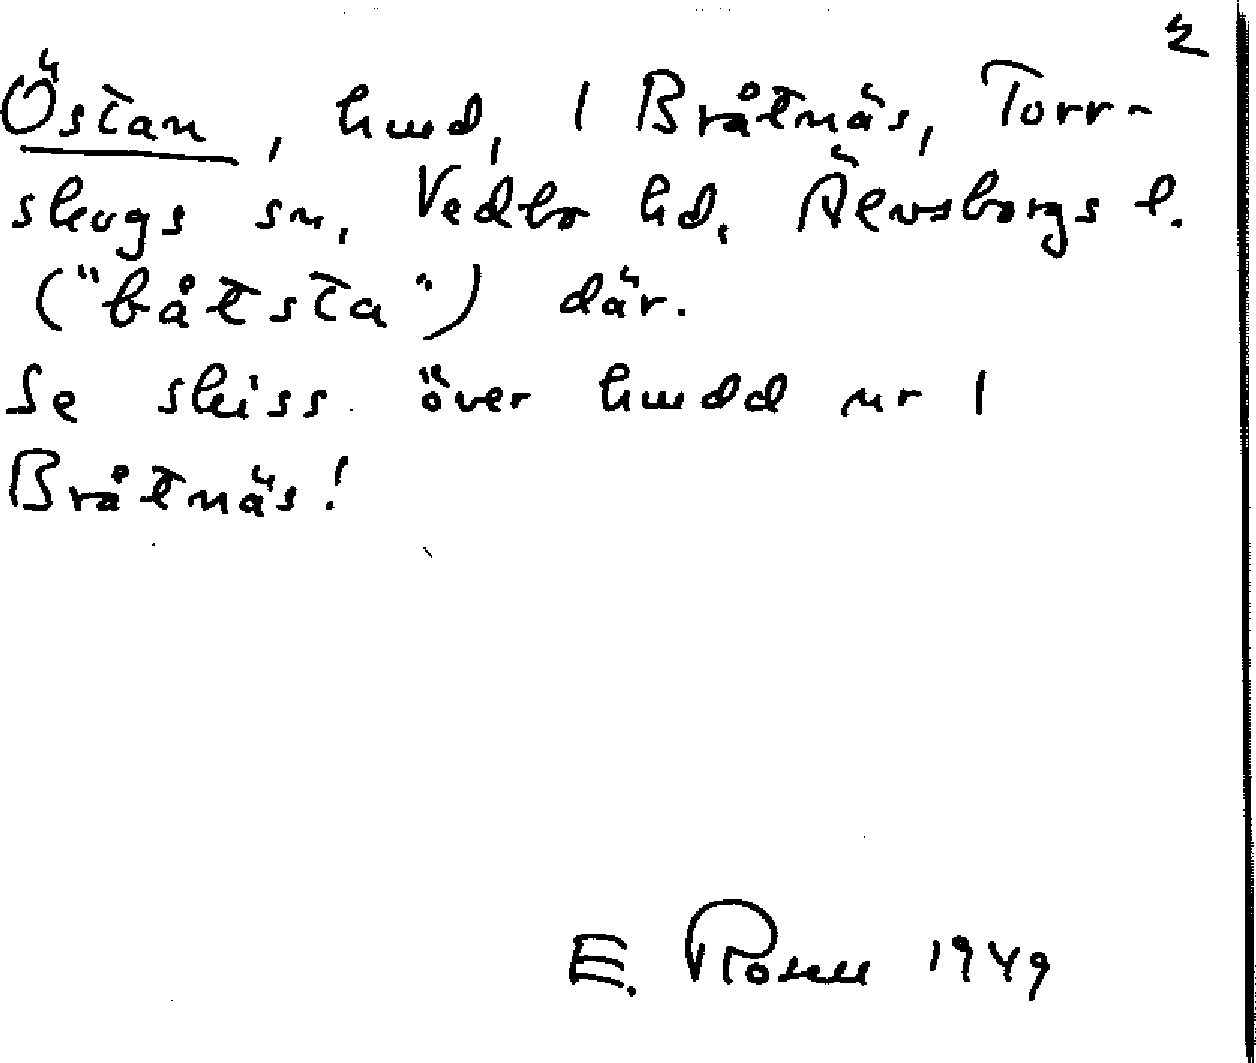 2
Östan, hmd, 1 Bråtnäs, Torr-
skogs sn, Vedbo hd, Älvsborgs l.
("båtsta") där.
Se skiss över hmdd nr 1
Bråtnäs!
E. Rosell 1949